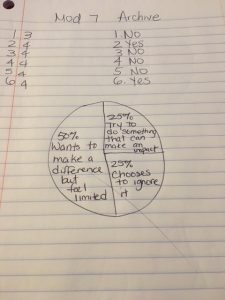 Mod 7 Archive
1 3
2 4
3 4
4 4
5 4
6 4
1. No
2 Yes
3 No
4 No
5 No
6. Yes
50%
Wants to
make a
difference
but
feel
limited
25%
Try to
do something
that can
make an
impact
25%
Chooses
to ignore
it